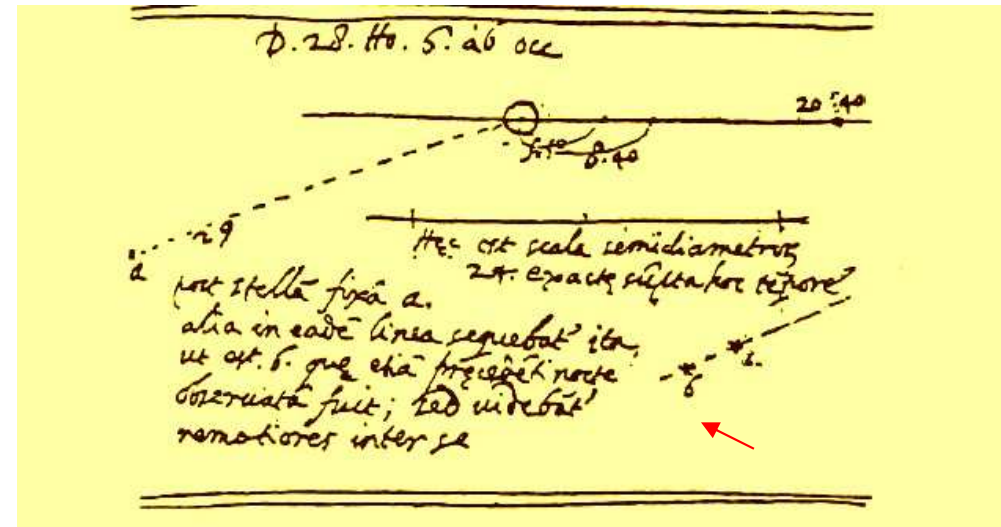 D. 28. Ho. 6. ab occ
20 40
8.40
29
a
Hęc est scala semidiametros
24. exactę sūpta hoc tēpore
post stellā fixā a.
alia in eadē linea sequebat' ita,
ut est. b. quę etiā pręcędēti nocte
obseruata fuit; sed uidebāt'
remotiores inter se
b